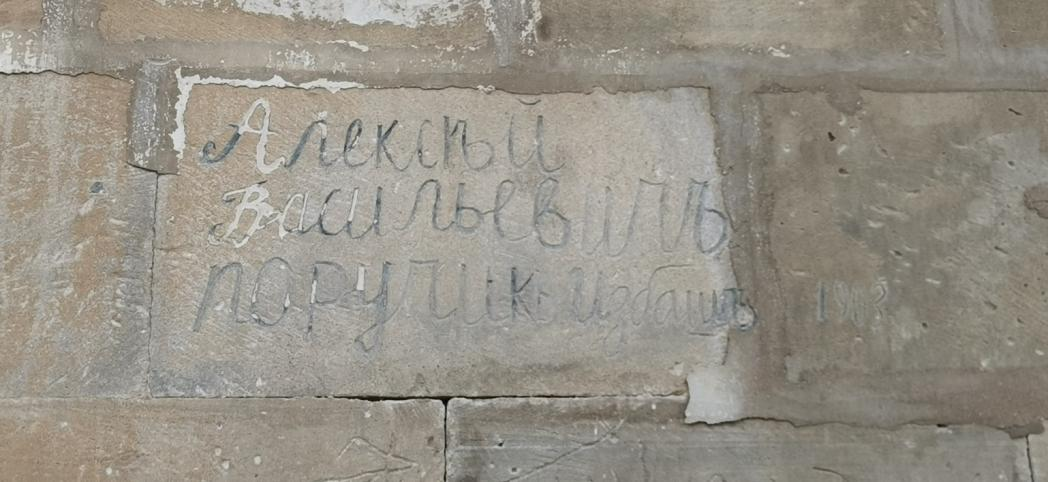 Алексѣй
Васильевичъ
поручикъ Избашъ 1903